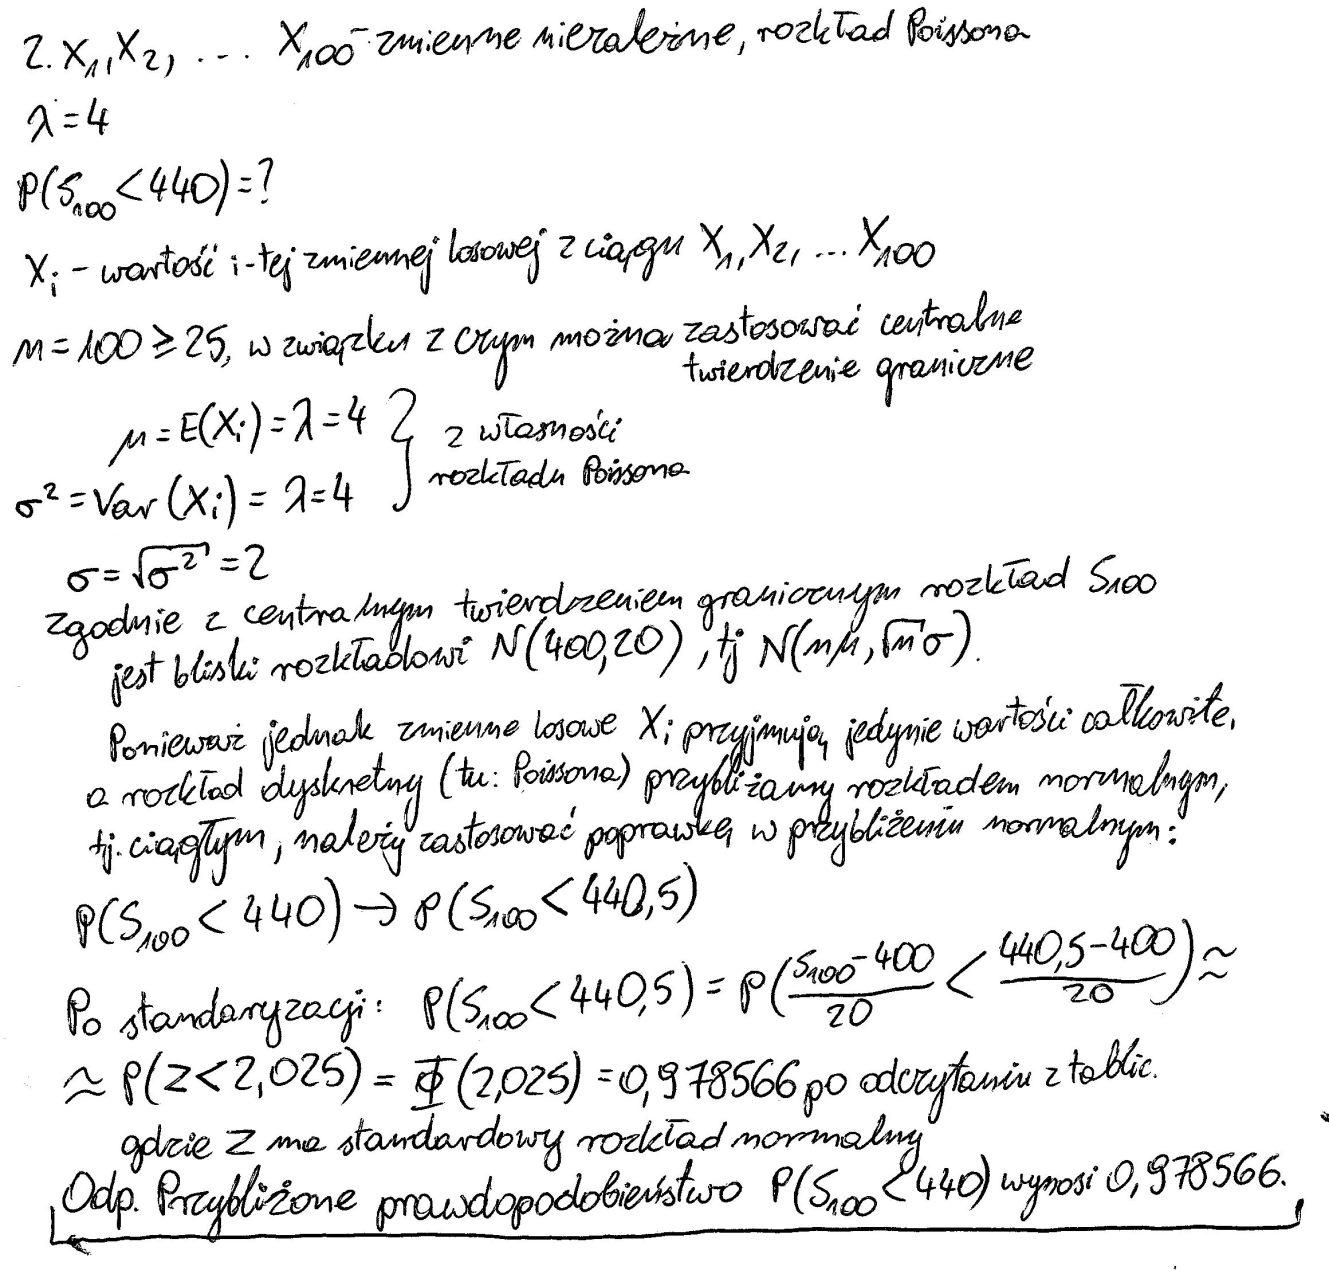 2. X₁, X₂, ... X₁₀₀ - zmienne niezależne, rozkład Poissona
λ = 4
P(S₁₀₀ < 440) = ?
Xᵢ - wartość i-tej zmiennej losowej z ciągu X₁, X₂, ... X₁₀₀
n = 100 ≥ 25, w związku z czym można zastosować centralne
twierdzenie graniczne
μ = E(Xᵢ) = λ = 4 } z własności
σ² = Var(Xᵢ) = λ = 4 } rozkładu Poissona
σ = √σ² = 2
Zgodnie z centralnym twierdzeniem granicznym rozkład S₁₀₀
jest bliski rozkładowi N(400, 20), tj N(nμ, √n σ).
Ponieważ jednak zmienne losowe Xᵢ przyjmują jedynie wartości całkowite,
a rozkład dyskretny (tu: Poissona) przybliżamy rozkładem normalnym,
tj. ciągłym, należy zastosować poprawkę w przybliżeniu normalnym:
P(S₁₀₀ < 440) → P(S₁₀₀ < 440,5)
Po standaryzacji: P(S₁₀₀ < 440,5) = P((S₁₀₀ - 400)/20 < (440,5 - 400)/20) ≈
≈ P(Z < 2,025) = Φ(2,025) = 0,978566 po odczytaniu z tablic.
gdzie Z ma standardowy rozkład normalny
Odp. Przybliżone prawdopodobieństwo P(S₁₀₀ < 440) wynosi 0,978566.